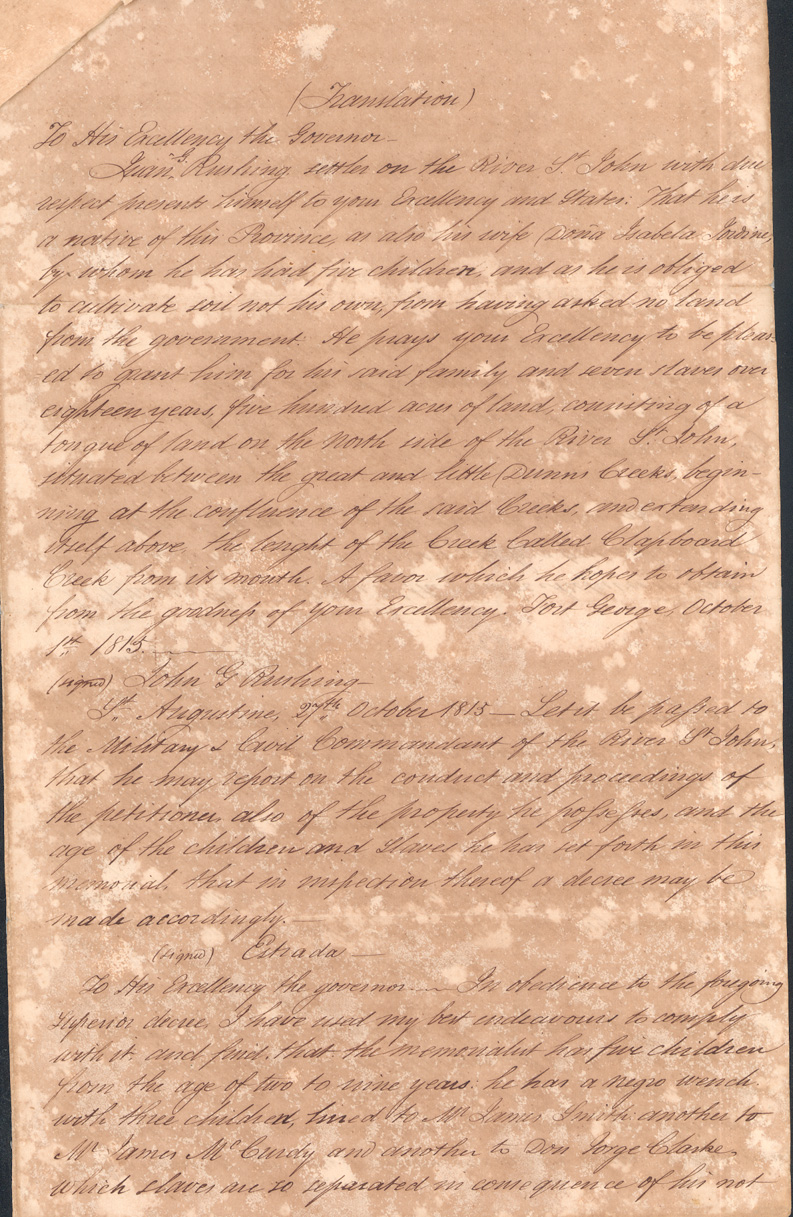 (Translation)
To His Excellency the Governor—
Juan G. Rushing settler on the River St. John with due
respect presents himself to your Excellency and States: That he is
a native of this Province, as also his wife Doña Isabela
by whom he has had five children, and as he is obliged
to cultivate soil not his own, from having asked no land
from the government. He prays your Excellency to be pleas-
ed to grant him for his said family and seven slaves over
eighteen years, five hundred acres of land, consisting of a
tongue of land on the North side of the River St. John,
situated between the great and little Dunns Creeks, begin-
ning at the confluence of the said Creeks, and extending
itself above, the lenght of the Creek Called Clapboard
Creek from its mouth. A favor which he hopes to obtain
from the goodness of your Excellency. Fort George, October
1st 1815.
(signed) John G Rushing—
St. Augustine, 27th October 1815— Let it be passed to
the Military & Civil Commandant of the River St John,
that he may report on the conduct and proceedings of
the petitioner, also of the property he possesses, and the
age of the children and slaves he has set forth in this
memorial, that in inspection thereof a decree may be
made accordingly.—
(signed) Estrada—
To His Excellency the governor— In obedience to the foregoing
superior decree, I have used my best endeavours to comply
with it, and find, that the memorialist has five children
from the age of two to nine years: he has a negro wench
with three children, hired to Mr James Smith another to
Mr James McCurdy and another to Don Jorge Clarke,
which slaves are so separated in consequence of his not